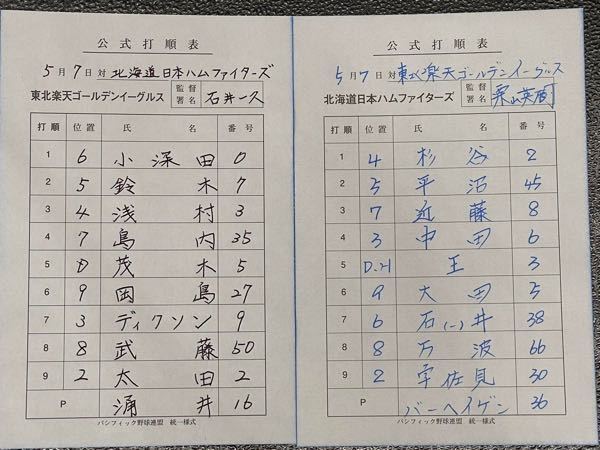 公式打順表
5月7日対北海道日本ハムファイターズ
東北楽天ゴールデンイーグルス 監督署名 石井一久
打順 位置 氏名 番号
1 6 小深田 0
2 5 鈴木 7
3 4 浅村 3
4 7 島内 35
5 D 茂木 5
6 9 岡島 27
7 3 ディクソン 9
8 8 武藤 50
9 2 太田 2
P 涌井 16
パシフィック野球連盟 統一様式
公式打順表
5月7日対東北楽天ゴールデンイーグルス
北海道日本ハムファイターズ 監督署名 栗山英樹
打順 位置 氏名 番号
1 4 杉谷 2
2 5 平沼 45
3 7 近藤 8
4 3 中田 6
5 D.H 王 3
6 9 大田 5
7 6 石(一)井 38
8 8 万波 66
9 2 宇佐見 30
P バーヘイゲン 36
パシフィック野球連盟 統一様式